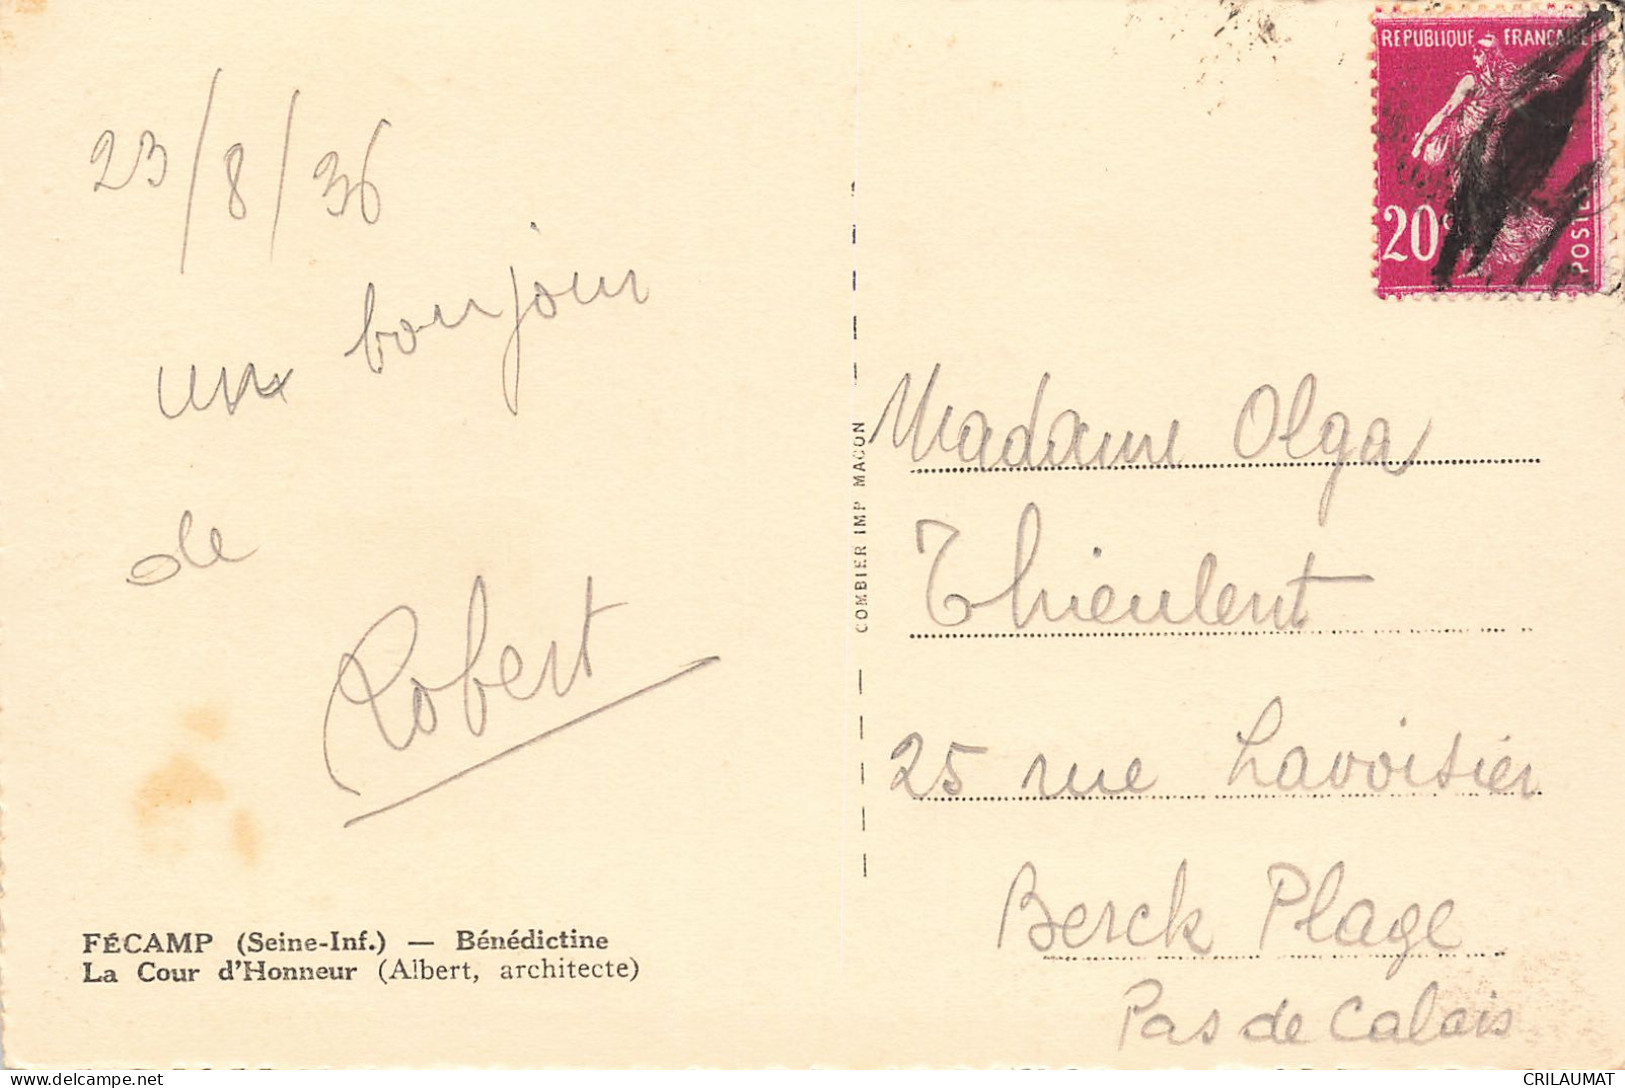 23/8/36
un bonjour
de
Robert
FÉCAMP (Seine-Inf.) — Bénédictine
La Cour d'Honneur (Albert, architecte)
COMBIER IMP MACON
REPUBLIQUE FRANÇAISE
20c
POSTES
Madame Olga
Thieulent
25 rue Lavoisier
Berck Plage
Pas de Calais
delcampe.net
CRILAUMAT